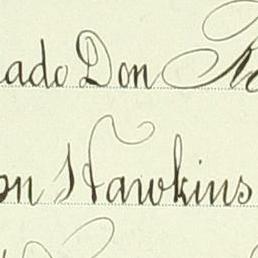 ado Don R
on Hawkins